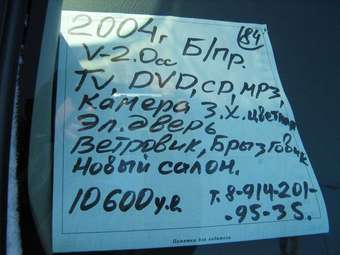 2004г Б/пр. 184
V-2.0сс
TV, DVD, CD, MP3,
Камера З.Х. цветная
Эл. дверь
Ветровик, Брызговик
Новый салон.
10600 у.е. т. 8-914-201-
-95-35.
Памятка для водителя